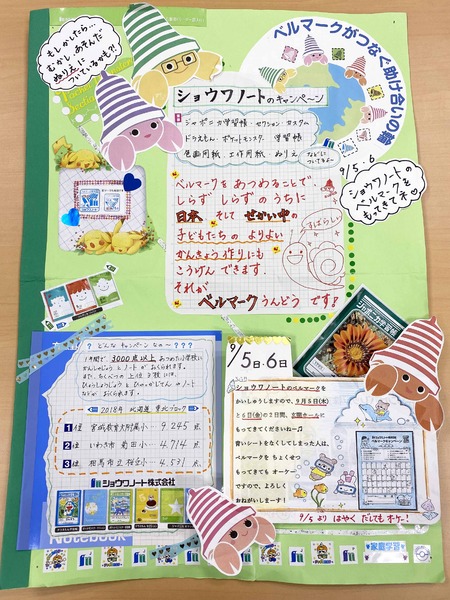 もしかしたら…
むかし、あそんだ
ぬり絵に
ついているかも?!
ベルマークがつなぐ助け合いの輪
ショウワノートのキャンペーン
ジャポニカ学習帳・セクション・カスタム
ドラえもん・ポケットモンスター 学習帳
色画用紙・工作用紙 ぬりえ
などにもついてるよー
9/5、6
ショウワノートの
ベルマークを
もってきてネ
ベルマークをあつめることで
しらず しらずのうちに
日本 そして せかい中の
子どもたちの よりよい
かんきょう作りにも
こうけん できます。
それが
ベルマークうんどう です!
すばらしい
? どんなキャンペーンなの〜???
1年間で 3000点以上 あつめた小学校に
かんしゃじょうと ノートが おくられます。
また、たくべつの 上位3校 には、
ひょうしょうじょうと ひゃっかじてんのノート
などが おくられます。
2018年 北海道 東北ブロック
1位 宮城教育大附属小 9245点
2位 いわき市 菊田小 4,714点
3位 相馬市立桜丘小 4,531点
ショウワノート株式会社
Notebook
9/5日・6日
ジャポニカ学習帳
ショウワノートのベルマークを
かいしゅうしますので、9月5日(木)
と6日(金)の2日間、玄関ホールに
もってきてくださいね〜♪
青いシートをなくしてしまった人は、
ベルマークを ちょくせつ
もってきても オーケー
ですので、よろしく
おねがいしまーす!
9/5 より はやく だしても オーケー!
家庭学習